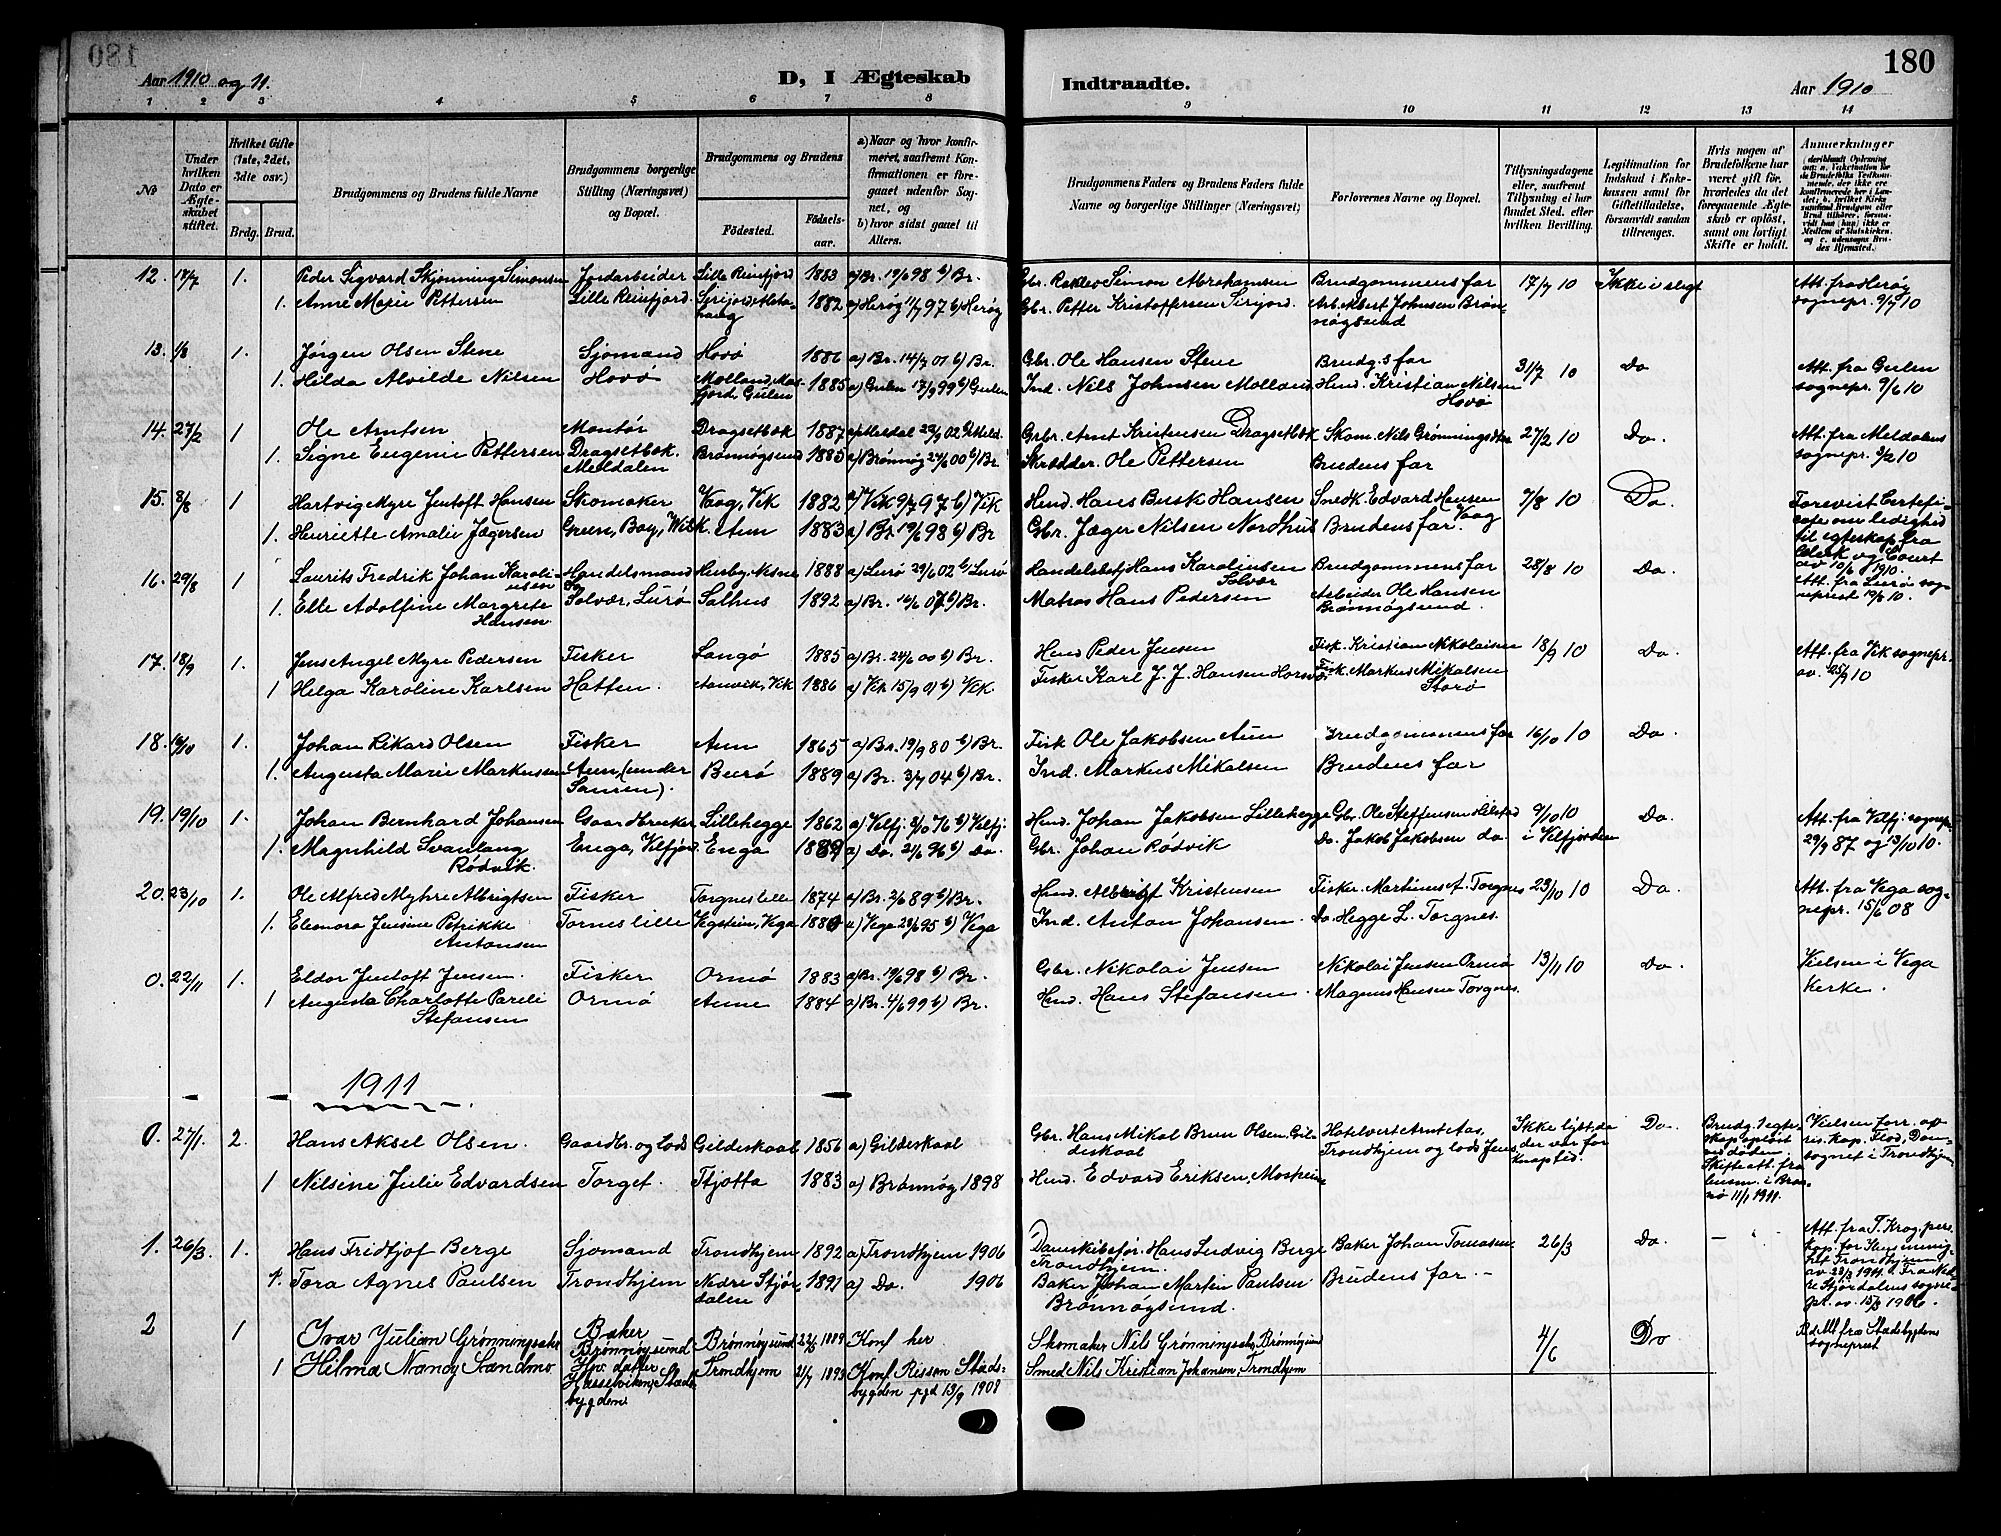 180
Aar 1910 og 11.
D, I Ægteskab
Indtraadte.
Aar 1910
1 2 3 4 5 6 7 8 9 10 11 12 13 14
No
Under hvilken Dato er Ægteskabet stiftet.
Hvilket Gifte (1ste, 2det, 3die osv.)
Brdg. Brud.
Brudgommens og Brudens fulde Navne
Brudgommens borgerlige Stilling (Næringsvei) og Bopæl.
Brudgommens og Brudens
Fødested.
Fødselsaar.
a) Naar og hvor konfirmeret, saafremt Konfirmationen er foregaaet udenfor Sognet, og
b) hvor sidst gaaet til Alters.
Brudgommens Faders og Brudens Faders fulde Navne og borgerlige Stillinger (Næringsvei)
Forlovernes Navne og Bopæl.
Tillysningsdagene eller, saafremt Tillysning ei har fundet Sted, efter hvilken Bevilling.
Legitimation for Indskud i Enkekassen samt for Giftetilladelse, forsaavidt saadan tiltrænges.
Hvis nogen af Brudefolkene har været gift før, hvorledes da det foregaaende Ægteskab er opløst, samt om lovligt Skifte er holdt.
Anmærkninger
12. 17/7 1. Peder Sigvard Skjønning Simonsen Jordarbeider Lille Reinfjord 1883 a) Br. 19/6 98 b) Br. Gbr. Simon Abrahamsen Brudgommens far 17/7 10 Ikke i slegt Att. fra Herøy
1. Anne Marie Pettersen Lille Reinfjord 1882 a) Herøy 11/7 97 b) Herøy Gbr. Petter Kristoffersen Arb. Albert Johnsen Brønnøysund sognepr. 9/7 10
13. 1/8 1. Jørgen Olsen Stene Sjømand Hovø 1886 a) Br. 14/7 01 b) Br. Gbr. Ole Hansen Stene Brudg.s far 31/7 10 Do Att. fra Gulen
1. Hilda Alvilde Nilsen Hovø 1885 a) Gulen 17/9 99 b) Gulen Ind. Nils Johnsen Molland Hmd. Kristian Nilsen Hovø sognepr. 9/6 10
14. 27/2 1 Ole Arntsen Montør Dragsetbøk 1887 Gbr. Arnt Kristensen Dragsetbøk Skom. Nils Grønningsæter 27/2 10 Do. Att. fra Meldalens
1. Signe Eugenie Pettersen Dragsetbøk. Meldalen Brønnøysund 1885 a) Brønnøy 24/6 00 b) Br Skrædder. Ole Pettersen Brudens far sognepr. 3/2 10
15. 8/8 1 Hartvig Myre Jentoft Hansen Skomaker Vaag, Vik 1882 a) Vik 9/7 97 b) Vik Hmd. Hans Busk Hansen Snedk. Edvard Hansen Vaag 7/8 10 Do. Forevist Certeficate om ledighed
1. Henriette Amalie Jægersen Green, Bay, Wisk. Aun 1883 a) Br 19/6 98 b) Br Gbr. Jæger Nilsen Nordhus Brudens far. til egteskap fra Clerk og Court av 10/6 1910.
16. 29/8 1 Laurits Fredrik Johan Karoliussen Handelsmand Husby, Nesne 1888 a) Lurø 29/6 02 b) Lurø Handelsbetj Hans Karolinsen Solvær Brudgommens far 28/8 10 Do. Att. fra Lurø sogneprest 19/8 10.
1. Elle Adolfine Margrete Hansen Solvær, Lurø Salhus 1892 a) Br. 16/6 07 b) Br. Matros Hans Pedersen Arbeider Ole Hansen Brønnøysund.
17. 18/9 1. Jens Angel Myre Pedersen Fisker Langø 1885 a) Br. 24/6 00 b) Br. Hmd Peder Jensen Fisk. Kristian Nikolaisen 18/9 10 Do. Att. fra Vik sognepr.
1 Helga Karoline Karlsen Hatten. Aanvik, Vik 1886 a) Vik 15/9 01 b) Vik. Fisker Karl J. J. Hansen Fisk. Markus Mikalsen Storø av. 25/9 10
18. 16/10 1. Johan Rikard Olsen Fisker Aun 1865 a) Br. 19/9 80 b) Br. Fisk Ole Jakobsen Aun Brudgommens far 16/10 10 Do.
1. Augusta Marie Markussen Aun, (under Saunen). Burø 1889 a) Br. 3/7 04 b) Br. Ind. Markus Mikalsen Brudens far
19. 19/10 1. Johan Bernhard Johansen Gaardbruker Lillehegge 1862 a) Velfj: 8/10 76 b) Velfj: Hmd. Johan Jakobsen Lillehegge Gbr. Ole Steffensen 9/10 10 Do. Att. fra Velfj: sognepr.
1. Magnhild Svanlaug Rødvik. Enga, Velfjord Enga 1889 a) Do. 21/6 96 b) Do. Gbr. Johan Rødvik Do. Jakob Jakobsen do i Velfjorden 29/9 87 og 13/10 10.
20. 23/10 1. Ole Alfred Myhre Albrigtsen Fisker Torgneslille 1874 a) Br. 2/6 89 b) Br. Hmd. Albrigt Kristensen Fisker. Martinus A. Torgnes 23/10 10 Do. Att. fra Vega sognepr. 15/6 08
1. Eleonora Jensine Petrikke Antonsen Torneslille Vegstein, Vega 1880 a) Vega 23/6 95 b) Vega Ind. Anton Johansen. Do. Hegge L. Torgnes.
0. 22/11 1. Eldor Jentoft Jensen. Fisker Ormø 1883 a) Br. 19/6 98 b) Br. Gbr. Nikolai Jensen Nikolai Jensen Ormø 13/11 10 Do. Vielsen i Vega Kerke.
1 Augusta Charlotte Pareli Stefansen Ormø Aune 1884 a) Br. 4/6 99 b) Br. Hmd. Hans Stefansen. Magnus Hansen Torgnes.
1911
0. 27/1. 2. Hans Aksel Olsen. Gaardbr. og Lods Gildeskaal 1856 a) Gildeskaal Gbr. Hans Mikal Brun Olsen, Gildeskaal Hotelvert Arnt Aas, Trondhjem og lods Jens Ikke lyst, da der var for knap tid. Do. Brudg. 1 egteskap opløst ved døden. Skifteatt. fra i Brønnø 11/1 1911. Vielsen forr. av
1 Nilsine Julie Edvardsen Torget. Tjøtta 1883 a) Brønnøy 1898 Hmd. Edvard Eriksen, Mosheim sognet i Trondhjem
1. 26/3. 1. Hans Fridtjof Berge Sjømand Trondhjem 1892 a) Trondhjem 1906 Dampskibsfør. Hans Ludvig Berge Trondhjem. Baker Johan Tomasen 26/3 Do. — Att. fra T. Krog, pers. kap. for Trondhjem
1. Tora Agnes Paulsen Trondhjem Nedre Stjørdalen 1891 a) Do. 1906 Baker Johan Martin Paulsen Brønnøysund. Brudens far. — av 23/3 1911. Fra Nedre Stjørdalens sognepr. av. 15/3 1906.
2 1 Ivar Julian Grønningsæter Baker Brønnøysund Brønnøysund 22/5 1889 Konf her Skomaker Nils Grønningsæter, Brønnøysund 4/6 Do Att fra Stadsbygdens sogneprest
1 Hilma Nancy Sandmo Hasselviken, Stadsbygden Trondhjem 2/7 1893 Konf Rissen Stadsbygden pgd 13/9 1908 Smed Nils Kristian Johansen, Trondhjem